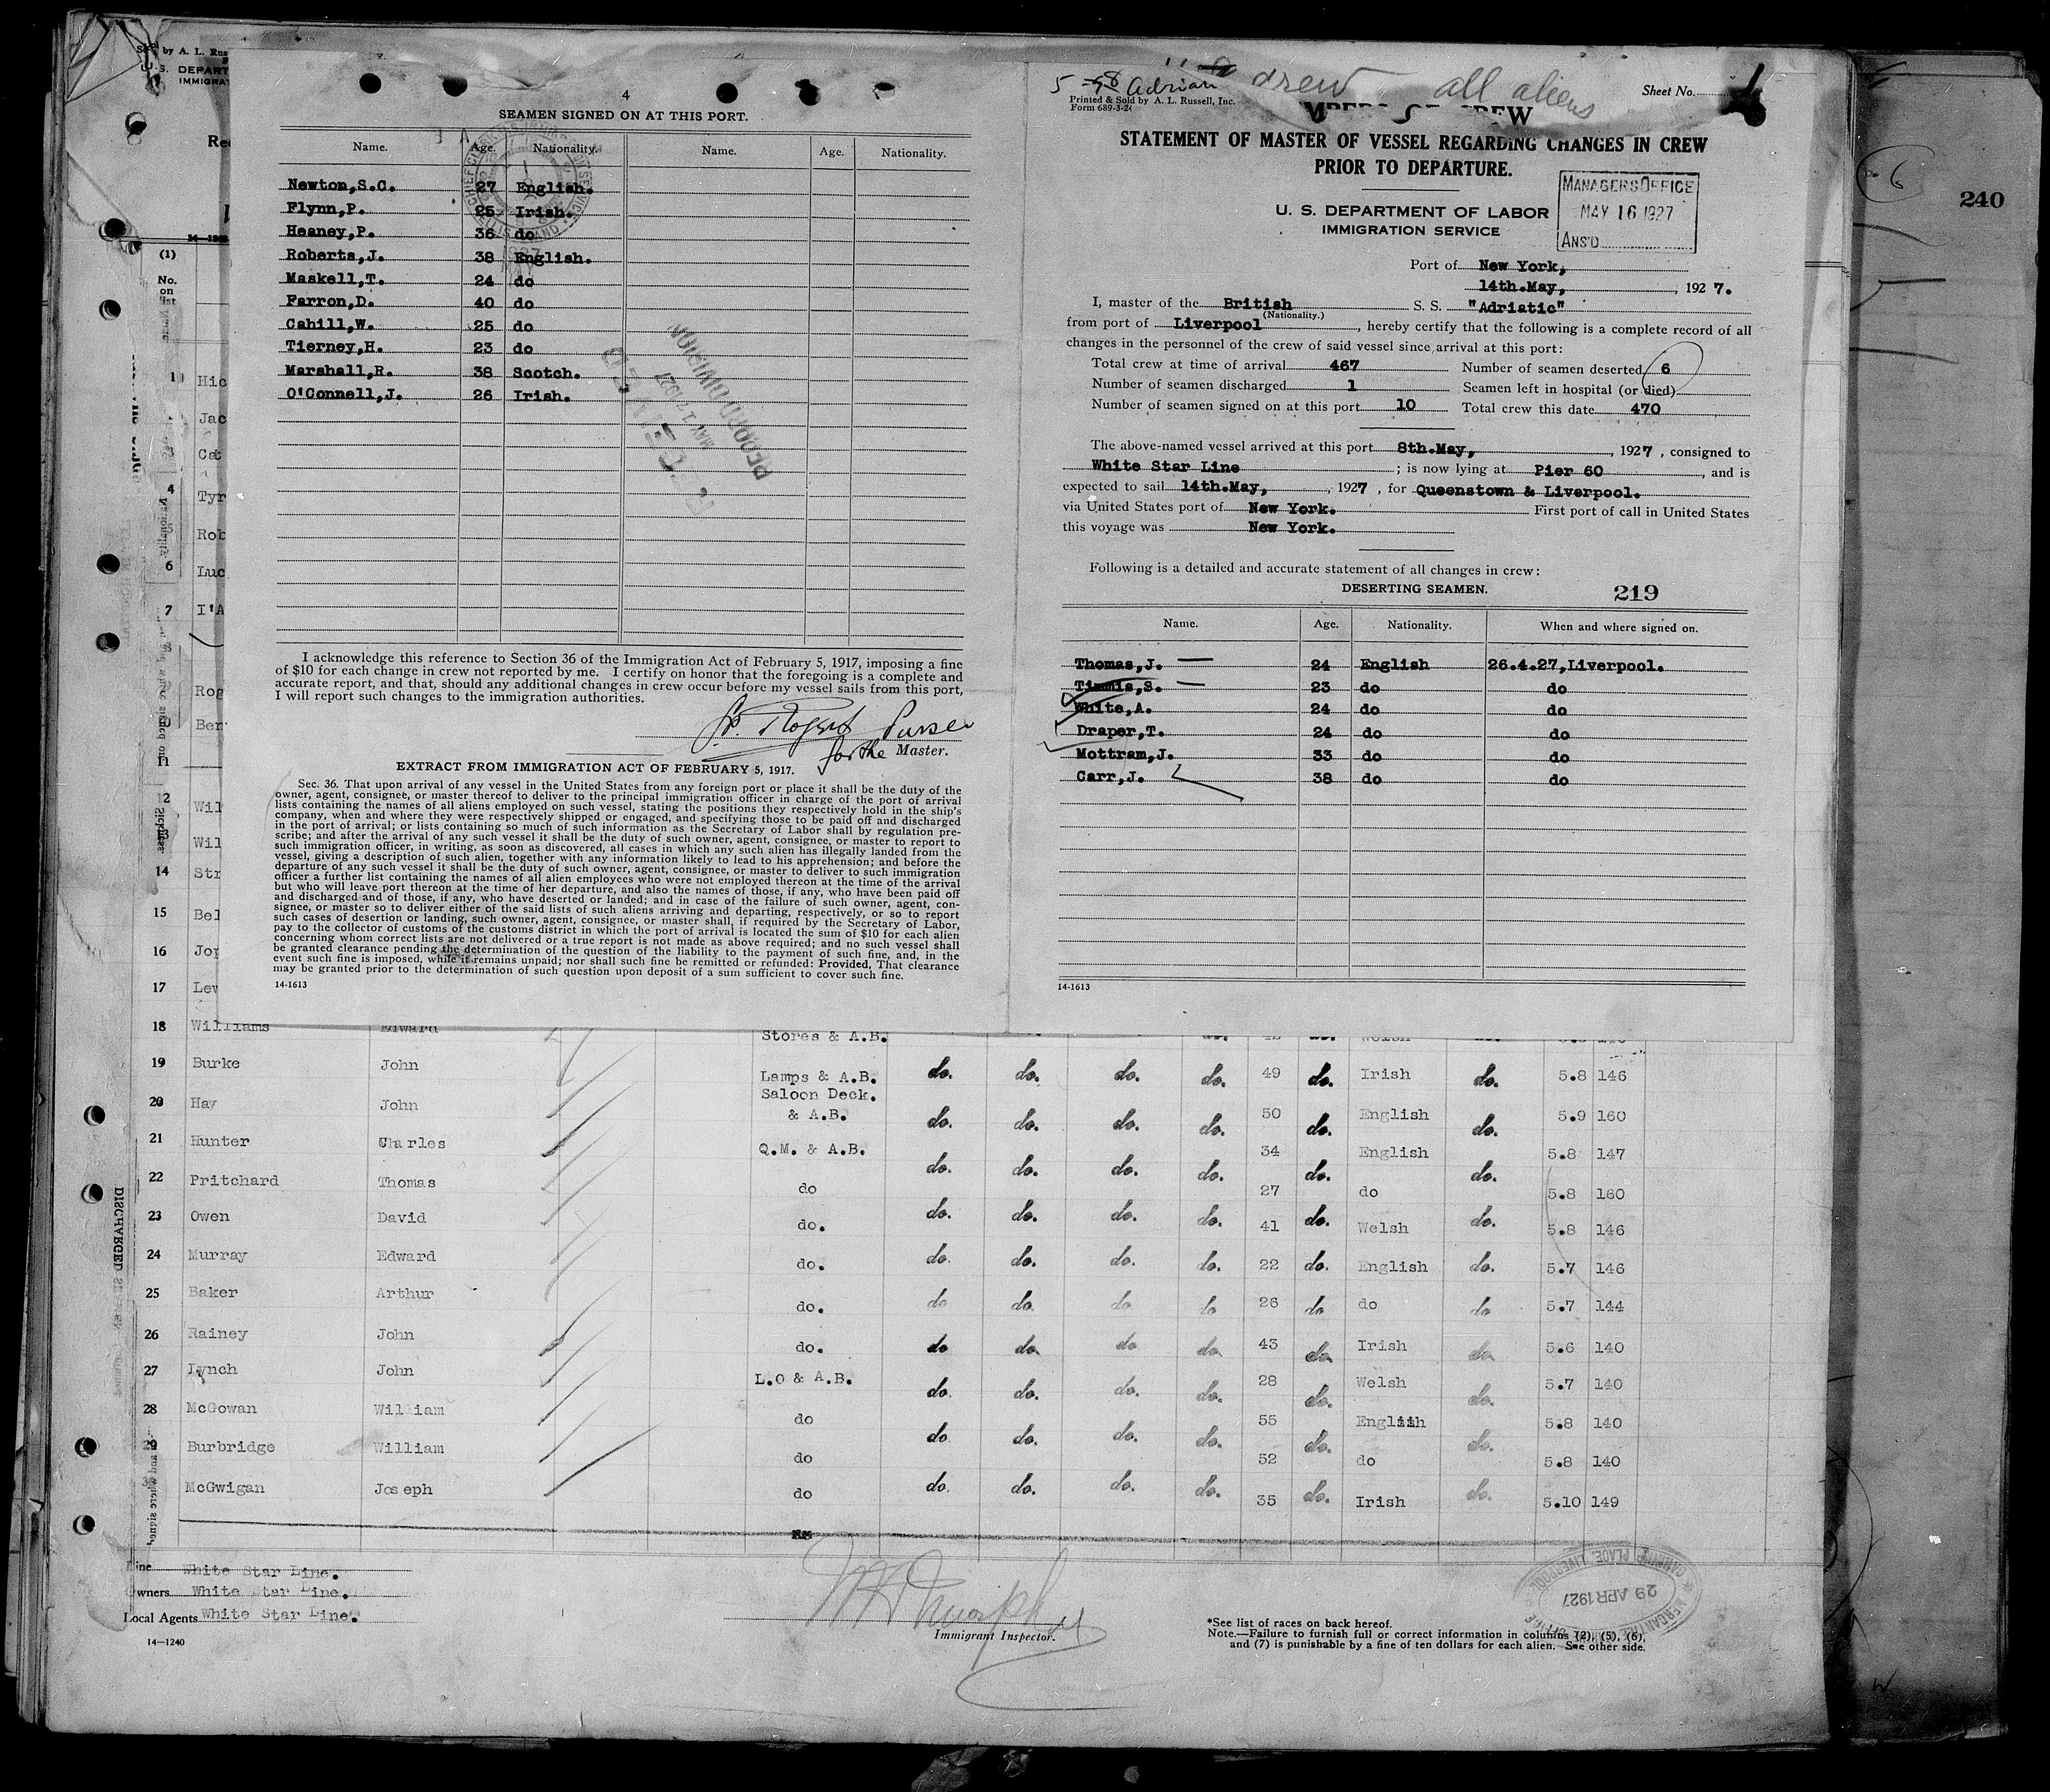 4
SEAMEN SIGNED ON AT THIS PORT.
Name. Age. Nationality. Name. Age. Nationality.
Newton,S.C. 27 English.
Flynn,P. 25 Irish.
Heaney,P. 36 do
Roberts,J. 38 English.
Maskell,T. 24 do
Farron,D. 40 do
Cahill,W. 25 do
Tierney,H. 23 do
Marshall,R. 38 Scotch.
O'Connell,J. 26 Irish.
RECORD DIVISION
RECEIVED
I acknowledge this reference to Section 36 of the Immigration Act of February 5, 1917, imposing a fine
of $10 for each change in crew not reported by me. I certify on honor that the foregoing is a complete and
accurate report, and that, should any additional changes in crew occur before my vessel sails from this port,
I will report such changes to the immigration authorities.
Purser
for the Master.
EXTRACT FROM IMMIGRATION ACT OF FEBRUARY 5, 1917.
Sec. 36. That upon arrival of any vessel in the United States from any foreign port or place it shall be the duty of the
owner, agent, consignee, or master thereof to deliver to the principal immigration officer in charge of the port of arrival
lists containing the names of all aliens employed on such vessel, stating the positions they respectively hold in the ship's
company, when and where they were respectively shipped or engaged, and specifying those to be paid off and discharged
in the port of arrival; or lists containing so much of such information as the Secretary of Labor shall by regulation pre-
scribe; and after the arrival of any such vessel it shall be the duty of such owner, agent, consignee, or master to report to
such immigration officer, in writing, as soon as discovered, all cases in which any such alien has illegally landed from the
vessel, giving a description of such alien, together with any information likely to lead to his apprehension; and before the
departure of any such vessel it shall be the duty of such owner, agent, consignee, or master to deliver to such immigration
officer a further list containing the names of all alien employees who were not employed thereon at the time of the arrival
but who will leave port thereon at the time of her departure, and also the names of those, if any, who have been paid off
and discharged and of those, if any, who have deserted or landed; and in case of the failure of such owner, agent, con-
signee, or master so to deliver either of the said lists of such aliens arriving and departing, respectively, or so to report
such cases of desertion or landing, such owner, agent, consignee, or master shall, if required by the Secretary of Labor,
pay to the collector of customs of the customs district in which the port of arrival is located the sum of $10 for each alien
concerning whom correct lists are not delivered or a true report is not made as above required; and no such vessel shall
be granted clearance pending the determination of the question of the liability to the payment of such fine, and, in the
event such fine is imposed, while it remains unpaid; nor shall such fine be remitted or refunded: Provided, That clearance
may be granted prior to the determination of such question upon deposit of a sum sufficient to cover such fine.
14-1613
drew all aliens
Printed & Sold by A. L. Russell, Inc.
Form 689-3-2
Sheet No. 1
STATEMENT OF MASTER OF VESSEL REGARDING CHANGES IN CREW
PRIOR TO DEPARTURE.
MANAGERS OFFICE
MAY 16 1927
ANS'D
U. S. DEPARTMENT OF LABOR
IMMIGRATION SERVICE
Port of New York,
14th.May, 1927.
I, master of the British S. S. "Adriatic"
(Nationality.)
from port of Liverpool, hereby certify that the following is a complete record of all
changes in the personnel of the crew of said vessel since arrival at this port:
Total crew at time of arrival 467 Number of seamen deserted 6
Number of seamen discharged 1 Seamen left in hospital (or died)
Number of seamen signed on at this port 10 Total crew this date 470
The above-named vessel arrived at this port 8th.May, 1927, consigned to
White Star Line ; is now lying at Pier 60, and is
expected to sail 14th.May, 1927, for Queenstown & Liverpool.
via United States port of New York. First port of call in United States
this voyage was New York.
Following is a detailed and accurate statement of all changes in crew:
DESERTING SEAMEN. 219
Name. Age. Nationality. When and where signed on.
Thomas,J. 24 English 26.4.27,Liverpool.
Timmis,S. 23 do do
White,A. 24 do do
Draper,T. 24 do do
Mottram,J. 33 do do
Carr,J. 38 do do
14-1613
240
6
(1)
No.
on
list
1 Hic
Jac
4 Tyr
Rob
6 Luc
7 I'A
Rog
10 Ber
11
12 Wil
Wil
14 Str
15 Bel
16 Jop
17 Lew
18 Williams Edward Stores & A.B.
19 Burke John Lamps & A.B. do. do. do. do. 49 do. Irish do. 5.8 146
20 Hay John Saloon Deck.
& A.B. do. do. do. do. 50 do. English do. 5.9 160
21 Hunter Charles Q.M. & A.B. do. do. do. do. 34 do. English do. 5.8 147
22 Pritchard Thomas do do. do. do. do. 27 do. do do. 5.8 160
23 Owen David do. do. do. do. do. 41 do. Welsh do. 5.8 146
24 Murray Edward do. do. do. do. do. 22 do. English do. 5.7 146
25 Baker Arthur do. do do. do do 26 do do do 5.7 144
26 Rainey John do. do do. do do. 43 do Irish do 5.6 140
27 Lynch John L.O & A.B. do. do. do. do. 28 do. Welsh do. 5.7 140
28 McGowan William do do. do. do. do. 55 do. English do. 5.8 140
29 Burbridge William do do. do. do. do. 52 do. do do. 5.8 140
McGwigan Joseph do 35 Irish 5.10 149
Line White Star Line.
Owners White Star Line.
Local Agents White Star Line.
14-1240
Immigrant Inspector.
29 APR 1927
*See list of races on back hereof.
Note.—Failure to furnish full or correct information in columns (2), (5), (6),
and (7) is punishable by a fine of ten dollars for each alien. See other side.